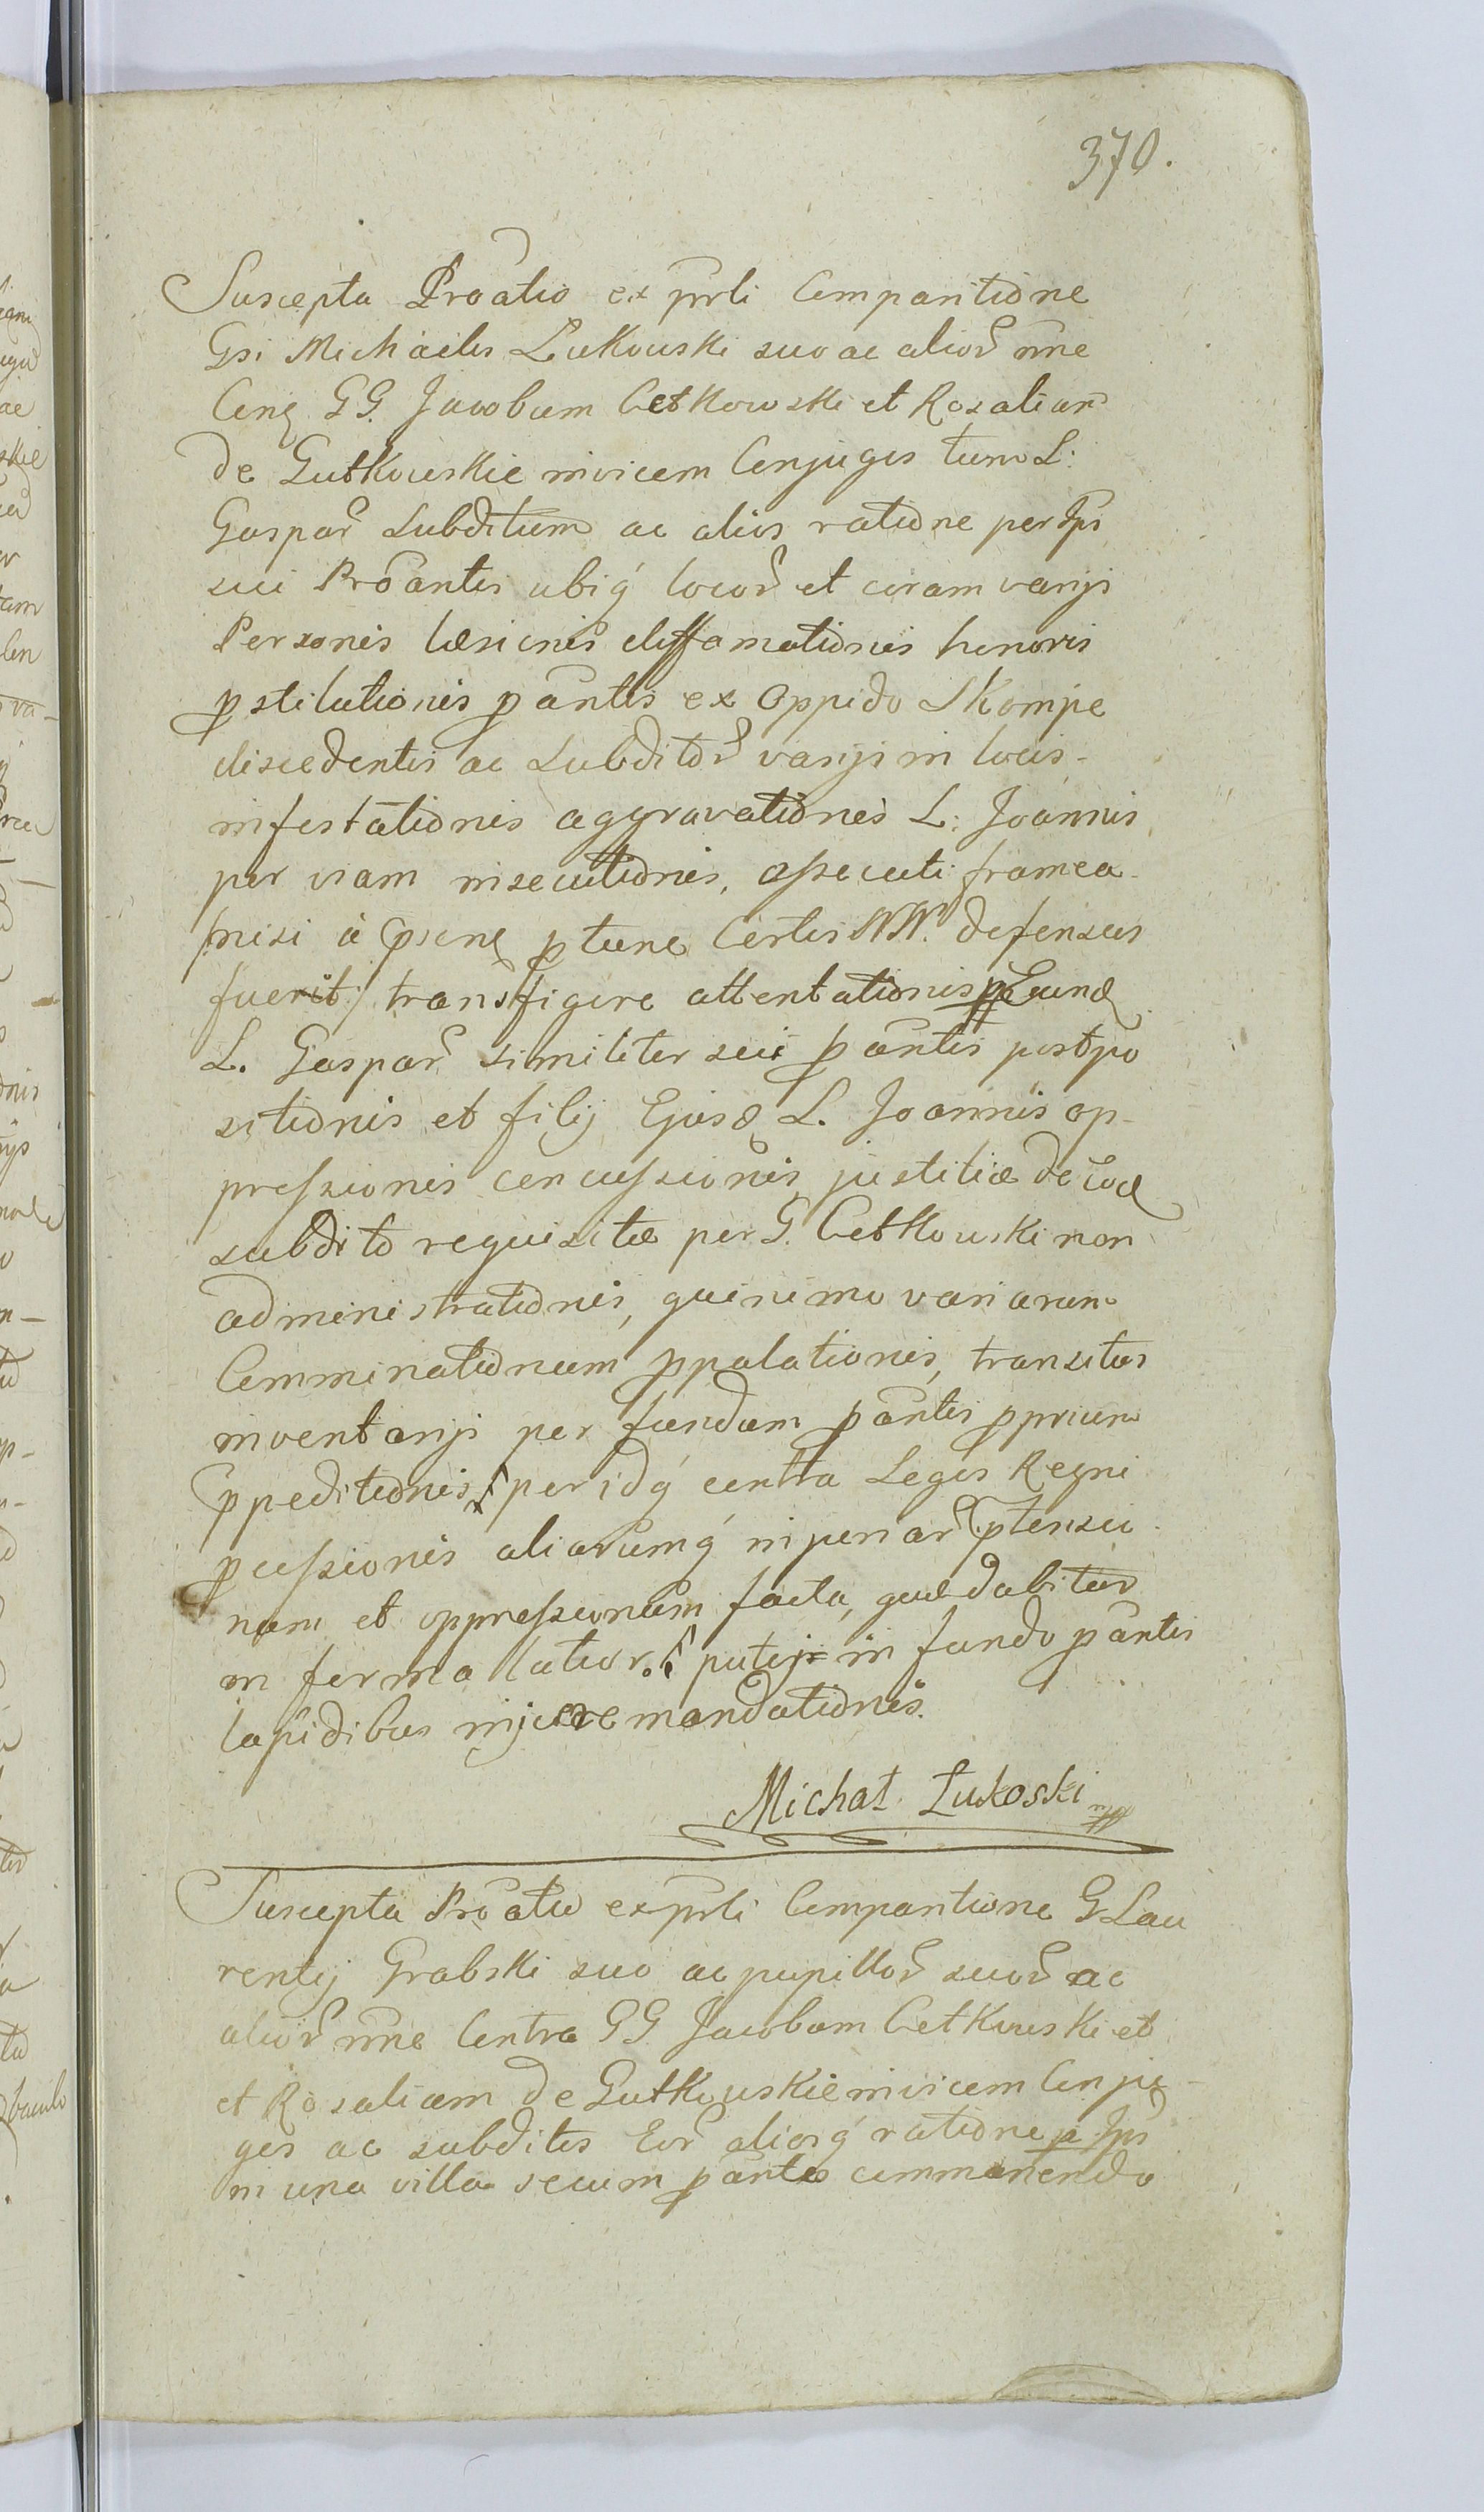 370.
Suscepta Proatio ex prli Comparitione
Gsi Michaelis Lukowski suo ac alior nne
Conq GG. Jacobum Cetkowski et Rosaliam
de Gutkowskie invicem Conjuges tum L:
Gaspar Subditum ac alios ratione per Ips
sui Proantis ubiq locor et coram varijs
Personis læsionis diffamationis honoris
pstitutionis pantis ex oppido Skompe
discedentis ac Subditor varijs in locis
infestationis aggravationis L: Joannis
per viam insecutionis, assecuti framea
/nisi à psone ptunc Certis NN. defensus
fuerit:/ transfigere attentationis p Eund
L. Gaspar similiter seu pantis postpo
sitionis et filij Ejusd L. Joannis op-
pressionis concussionis, justitiæ de eod
subdito requisitæ per G. Cetkowski non
administrationis, quinimo variarum
Comminationum ppalationis, transitus
inventarij per fundum pantis pprium
ppeditionis, peridq contra Leges Regni
pcussionis aliarumq injuriar ptensio
num et oppressionum facta, quæ dabitur
in forma latior. putej in fundo pantis
lapidibus injicere mandationis.
Michał Łukoski mpp
Suscepta Proatio ex prli Comparitione G Lau
rentij Grabski suo ac pupillor suor ac
alior nne Contra GG Jacobum Cetkowski et
et Rosaliam de Gutkowskie invicem Conju-
ges ac subditos Eor aliosq ratione p Ips
in una villa secum pante commanendo